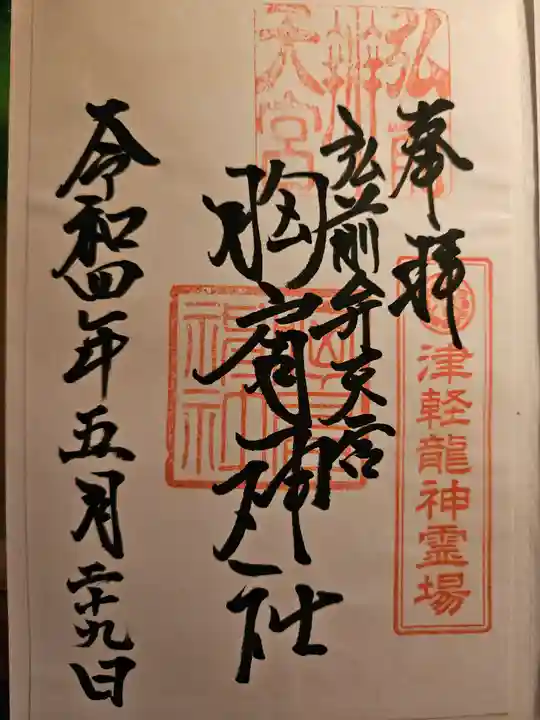 奉拝
津軽龍神霊場
弘前弁天宮
弘前辨天宮
胸肩神社
胸肩神社
令和四年五月二十九日